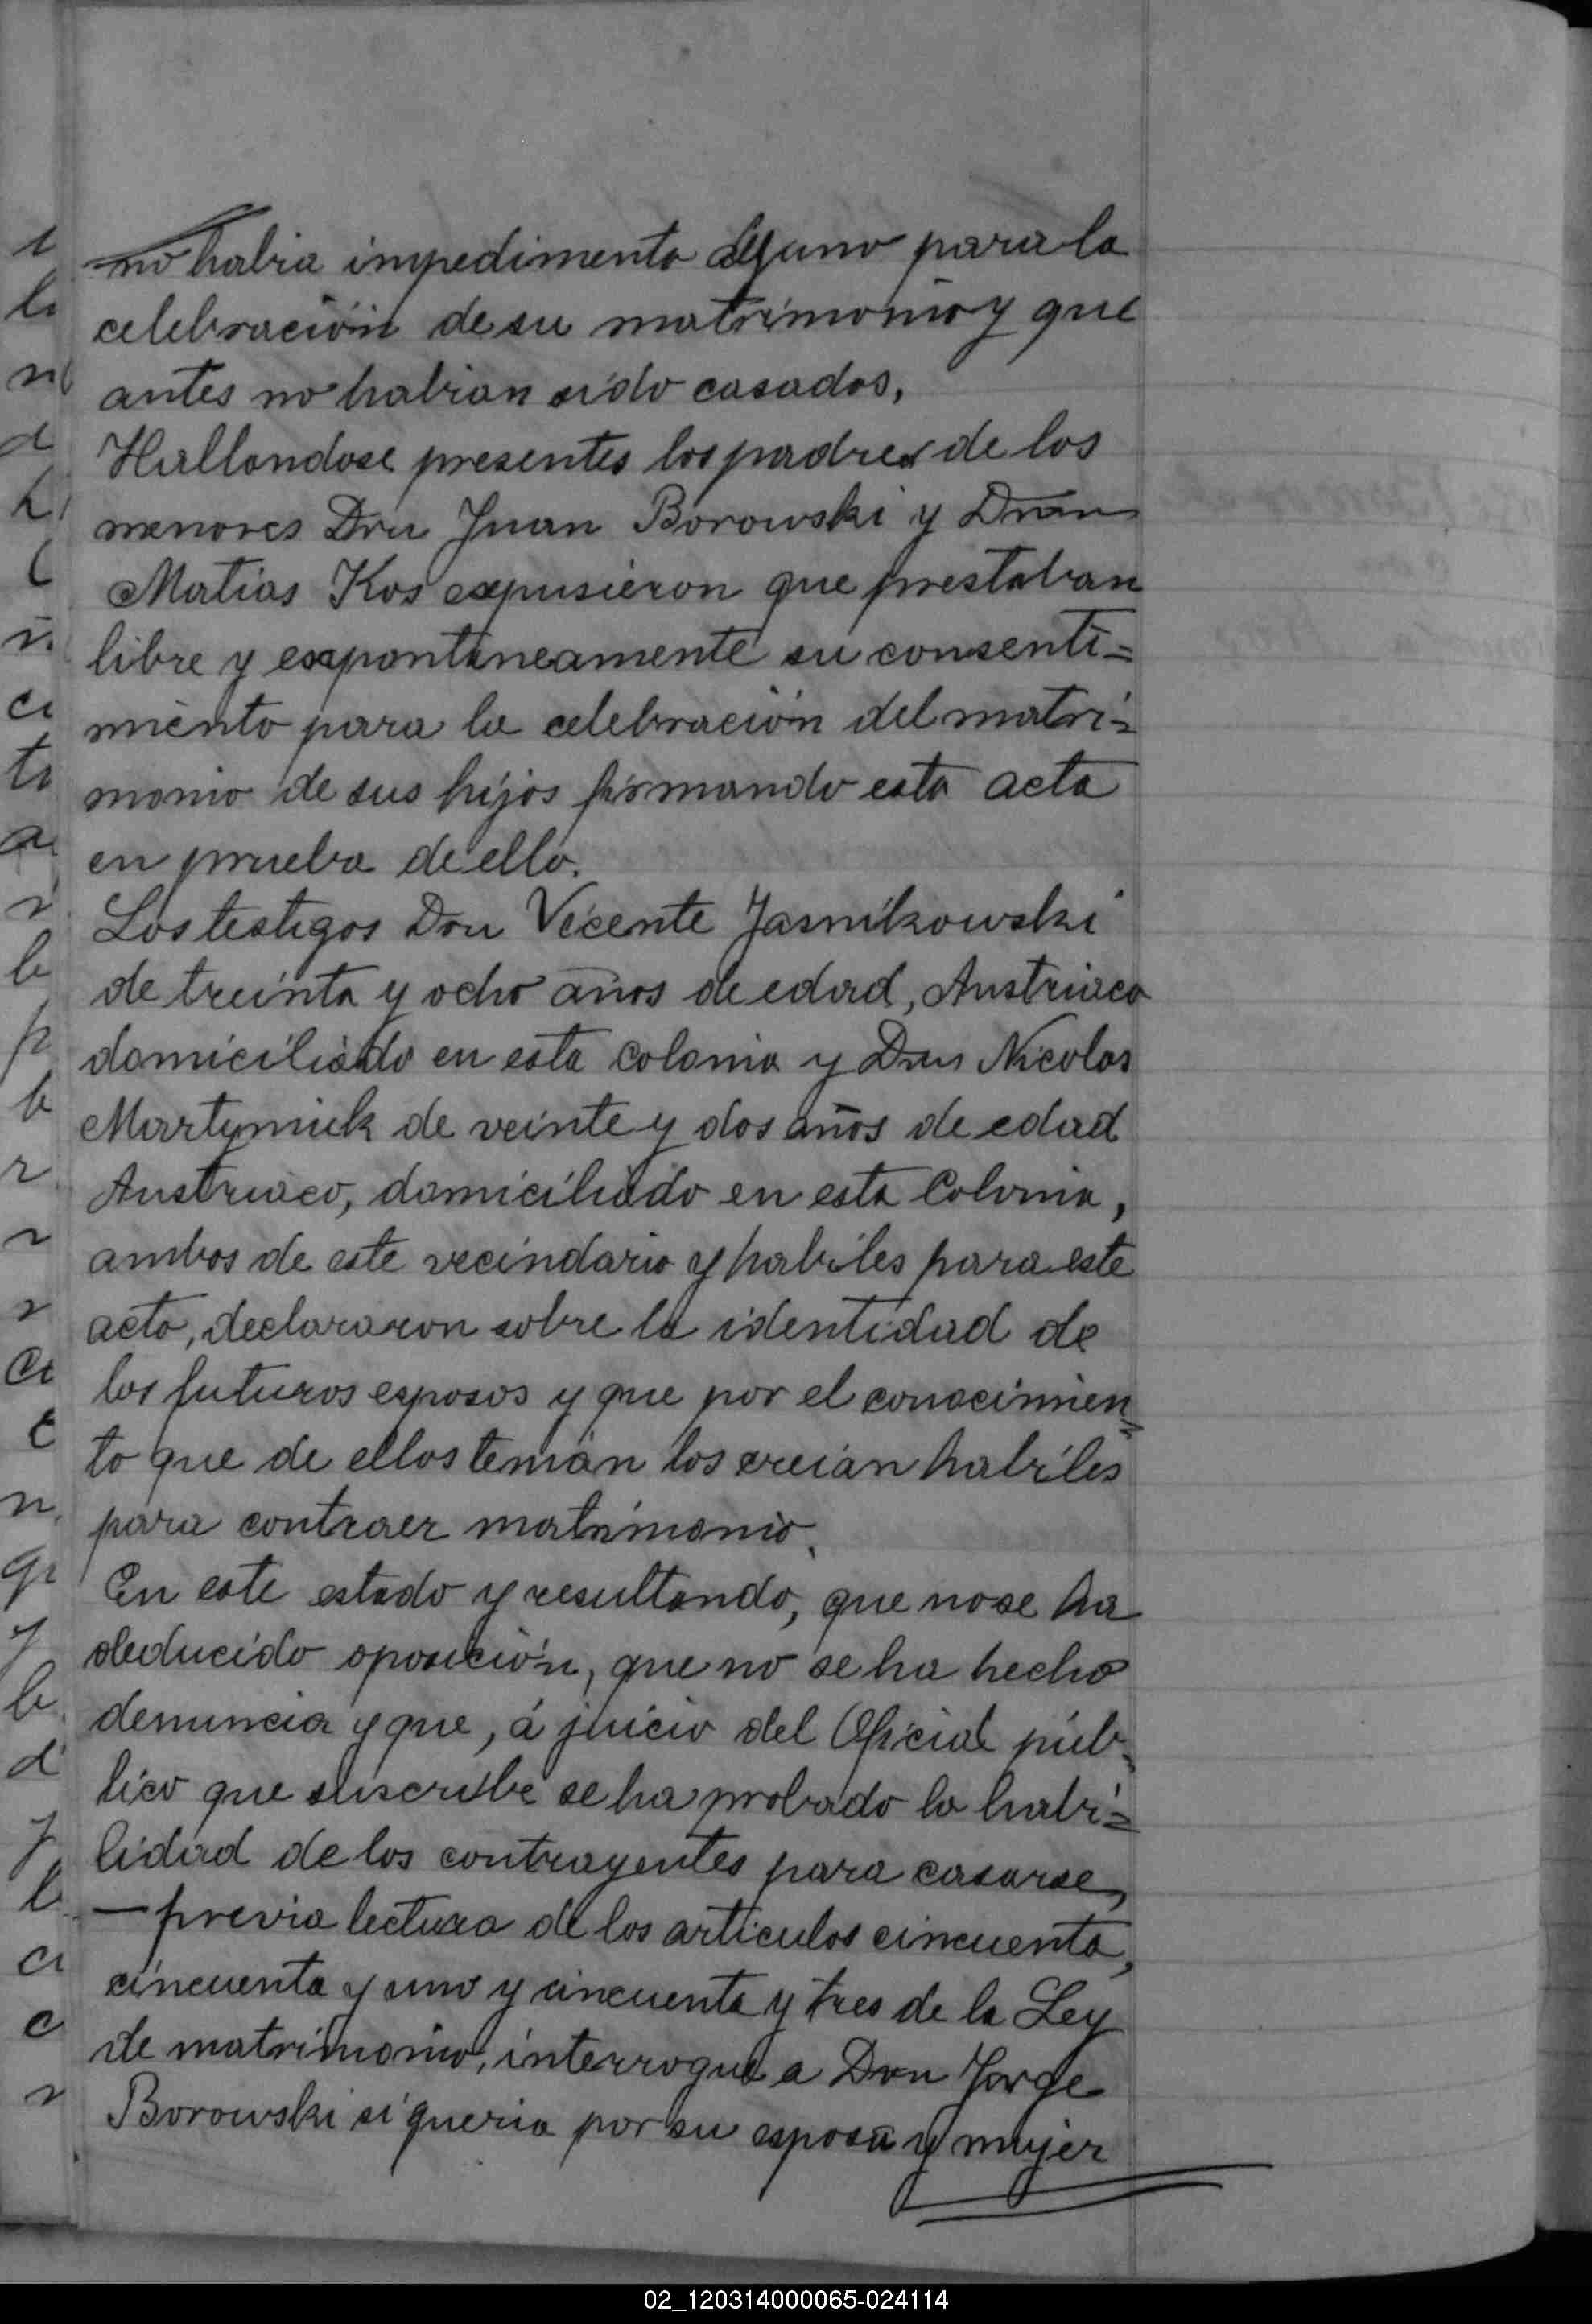 no habia impedimento alguno para la
celebración de su matrimonio y que
antes no habian sido casados,
Hallandose presentes los padres de los
menores Don Juan Borowski y Don
Matias Kos expusieron que prestaban
libre y expontaneamente su consenti=
miento para la celebración del matri=
monio de sus hijos firmando esta acta
en prueba de ello.
Los testigos Don Vicente Jasnikowski
de treinta y ocho años de edad, Austriaco
domiciliado en esta colonia y Don Nicolas
Martyniuk de veinte y dos años de edad
Austriaco, domiciliado en esta Colonia,
ambos de este vecindario y habiles para este
acto, declararon sobre la identidad de
los futuros esposos y que por el conocimien=
to que de ellos tenian los creian habiles
para contraer matrimonio.
En este estado y resultando, que no se ha
deducido oposición, que no se ha hecho
denuncia y que, á juicio del Oficial púb=
lico que suscribe se ha probado la habi=
lidad de los contrayentes para casarse,
— previa lectura de los articulos cincuenta,
cincuenta y uno y cincuenta y tres de la Ley
de matrimonio, interrogue a Don Jorge
Borowski si queria por su esposa y mujer
02_120314000065-024114